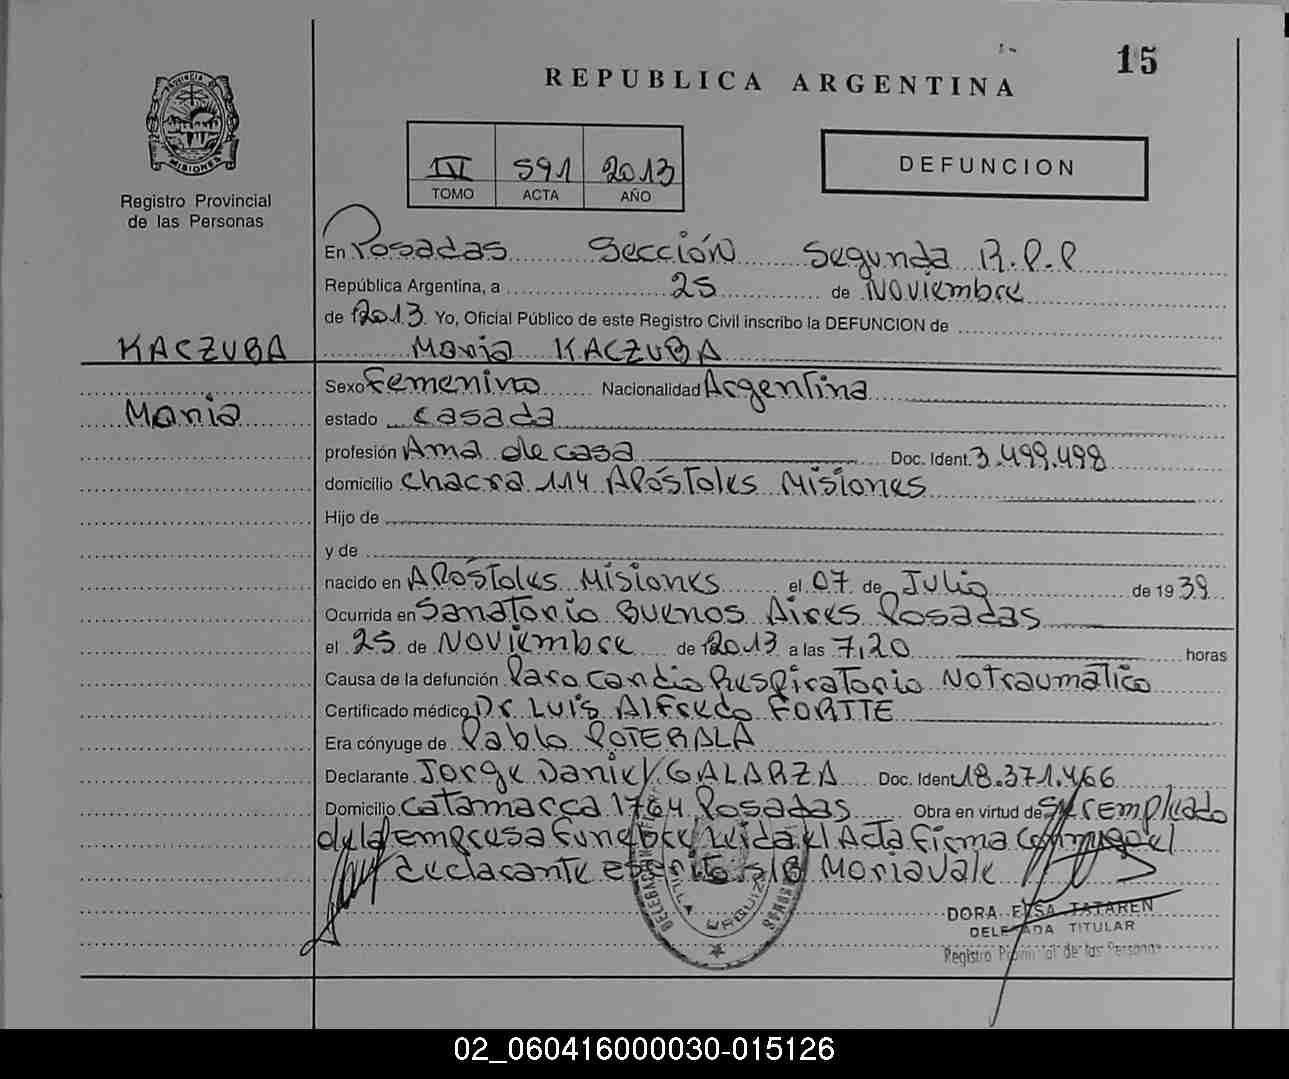 15
REPUBLICA ARGENTINA
PROVINCIA DE
MISIONES
Registro Provincial
de las Personas
IV 591 2013
TOMO ACTA AÑO
DEFUNCION
En Posadas Sección Segunda R.P.P
República Argentina, a 25 de Noviembre
de 2013. Yo, Oficial Público de este Registro Civil inscribo la DEFUNCION de
KACZUBA Maria KACZUBA
Sexo Femenino Nacionalidad Argentina
Maria estado casada
profesión Ama de casa Doc. Ident. 3.499.498
domicilio chacra 114 Apóstoles Misiones
Hijo de
y de
nacido en Apóstoles Misiones el 07 de Julio de 1939
Ocurrida en Sanatorio Buenos Aires Posadas
el 25 de Noviembre de 2013 a las 7,20 horas
Causa de la defunción Paro cardio Respiratorio No traumático
Certificado médico Dr Luis Alfredo FORTTE
Era cónyuge de Pablo POTERALA
Declarante Jorge Daniel GALARZA Doc. Ident 18.371.466
Domicilio Catamarca 1764 Posadas Obra en virtud de ser empleado
de la empresa funebre Leida el Acta firma conmigo el
declarante escrito s/B Maria Vale
DELEGACION
VILLA URQUIZA
DORA ELSA TATAREN
DELEGADA TITULAR
Registro Provincial de las Personas
02_060416000030-015126